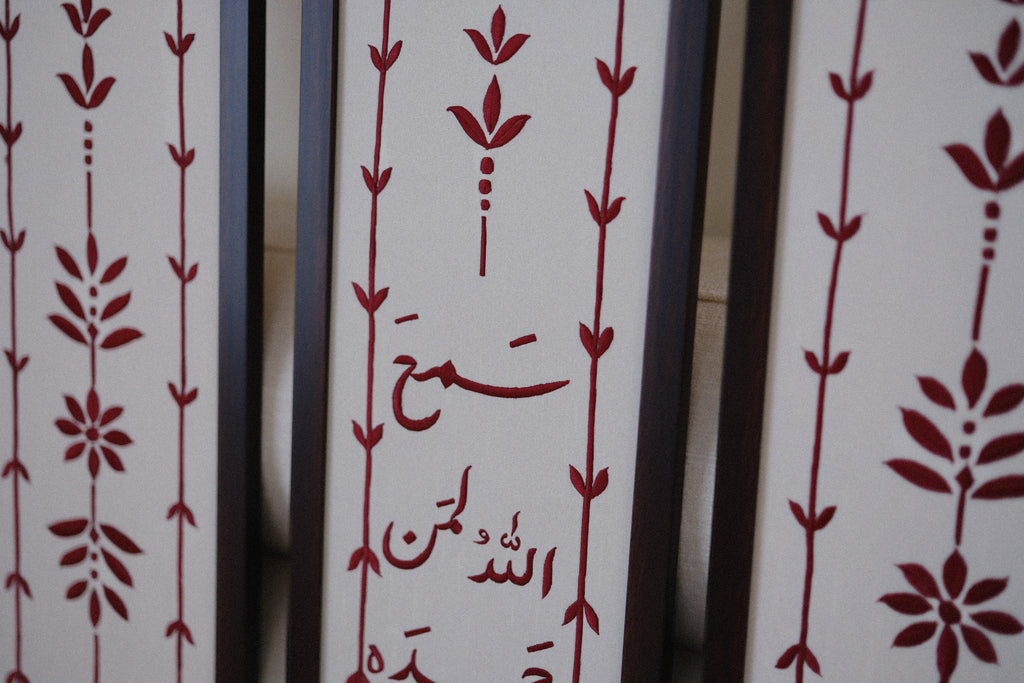 سَمعَ
اللّٰهُ لمَن
حَمدَه